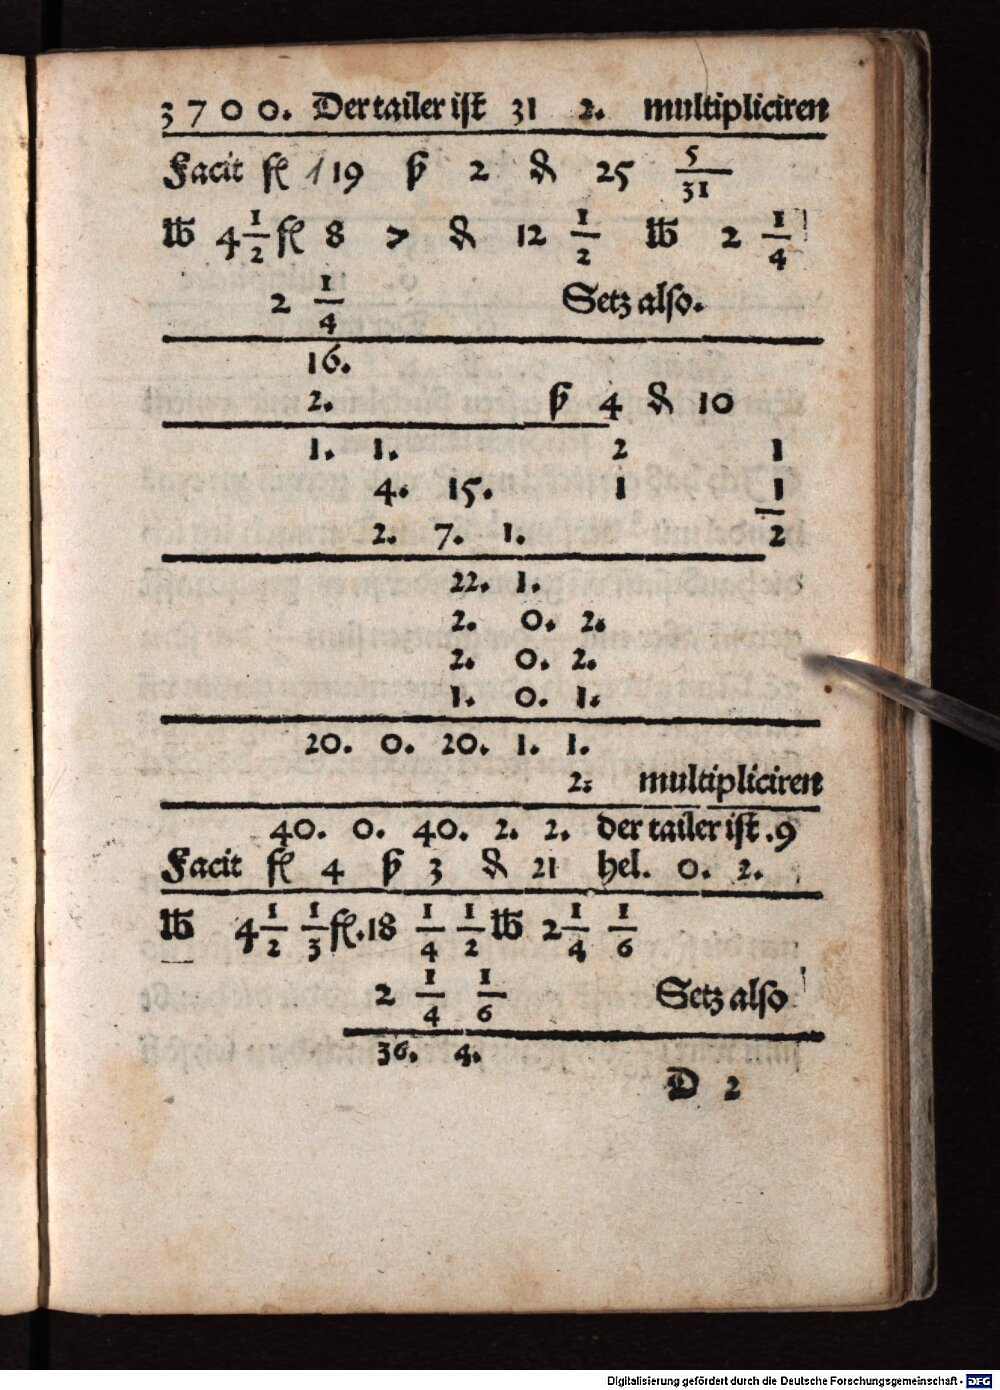 3 7 0 0. Der tailer ist 31 2. multipliciren
Facit fl 119 ß 2 ₰ 25 5/31
℔ 4 1/2 fl 8 > ₰ 12 1/2 ℔ 2 1/4
2 1/4 Setz also.
16.
2. ß 4 ₰ 10
1. 1. 2 1
4. 15. 1 1
2. 7. 1. 2
22. 1.
2. 0. 2.
2. 0. 2.
1. 0. 1.
20. 0. 20. 1. 1.
2: multipliciren
40. 0. 40. 2. 2. der tailer ist .9
Facit fl 4 ß 3 ₰ 21 hel. 0. 2.
℔ 4 1/2 1/3 fl.18 1/4 1/2 ℔ 2 1/4 1/6
2 1/4 1/6 Setz also
36. 4.
D 2
Digitalisierung gefördert durch die Deutsche Forschungsgemeinschaft - DFG